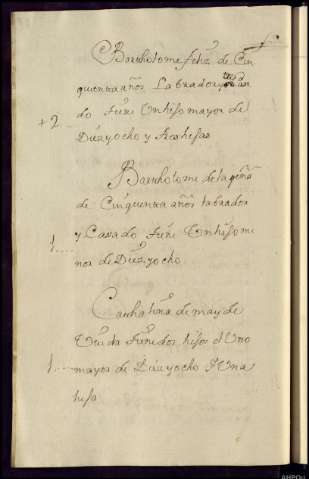 Bartholome sehz de Cin
quenta años Labrador y Casa
do tiene Un hijo mayor de
+2 Diez y ocho y tres hijas
Bartholome de la Peña
de Cinquenta años labrador
y Casado tiene Un hijo me
1 nor de Diez y ocho
Catha lina de may de
Viuda tiene dos hijos el Uno
1 mayor de Diez y ocho y Una
hija
AHPOu